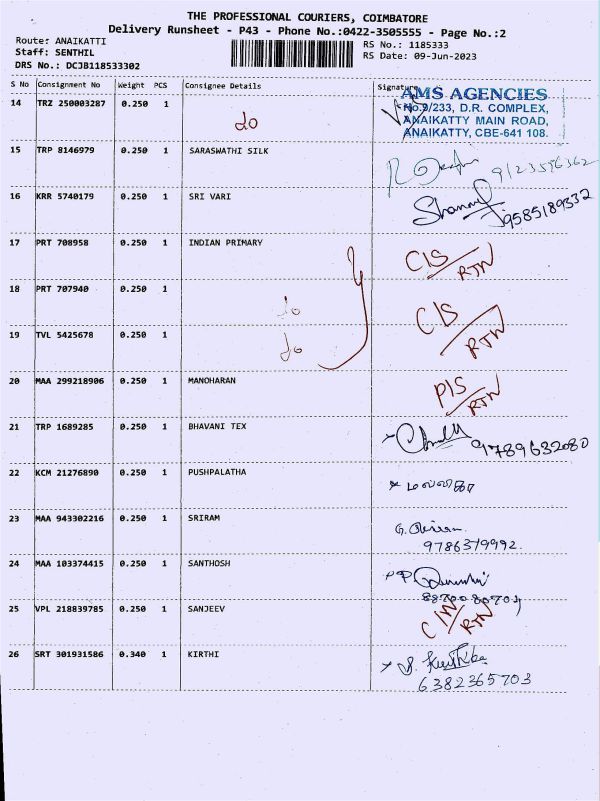 THE PROFESSIONAL COURIERS, COIMBATORE
Delivery Runsheet - P43 - Phone No.:0422-3505555 - Page No.:2
Route: ANAIKATTI
Staff: SENTHIL
DRS No.: DCJB118533302
RS No.: 1185333
RS Date: 09-Jun-2023
S No Consignment No Weight PCS Consignee Details Signature
14 TRZ 250003287 0.250 1 do
AMS AGENCIES
No.9/233, D.R. COMPLEX,
ANAIKATTY MAIN ROAD,
ANAIKATTY, CBE-641 108.
15 TRP 8146979 0.250 1 SARASWATHI SILK 9123596362
16 KRR 5740179 0.250 1 SRI VARI 9585189332
17 PRT 708958 0.250 1 INDIAN PRIMARY C/S RTN
18 PRT 707940 0.250 1 do C/S RTN
19 TVL 5425678 0.250 1 do
20 MAA 299218906 0.250 1 MANOHARAN P/S RTN
21 TRP 1689285 0.250 1 BHAVANI TEX 9789632080
22 KCM 21276890 0.250 1 PUSHPALATHA
23 MAA 943302216 0.250 1 SRIRAM
9786379992
24 MAA 103374415 0.250 1 SANTHOSH
25 VPL 218839785 0.250 1 SANJEEV RTN
26 SRT 301931586 0.340 1 KIRTHI
6382365703